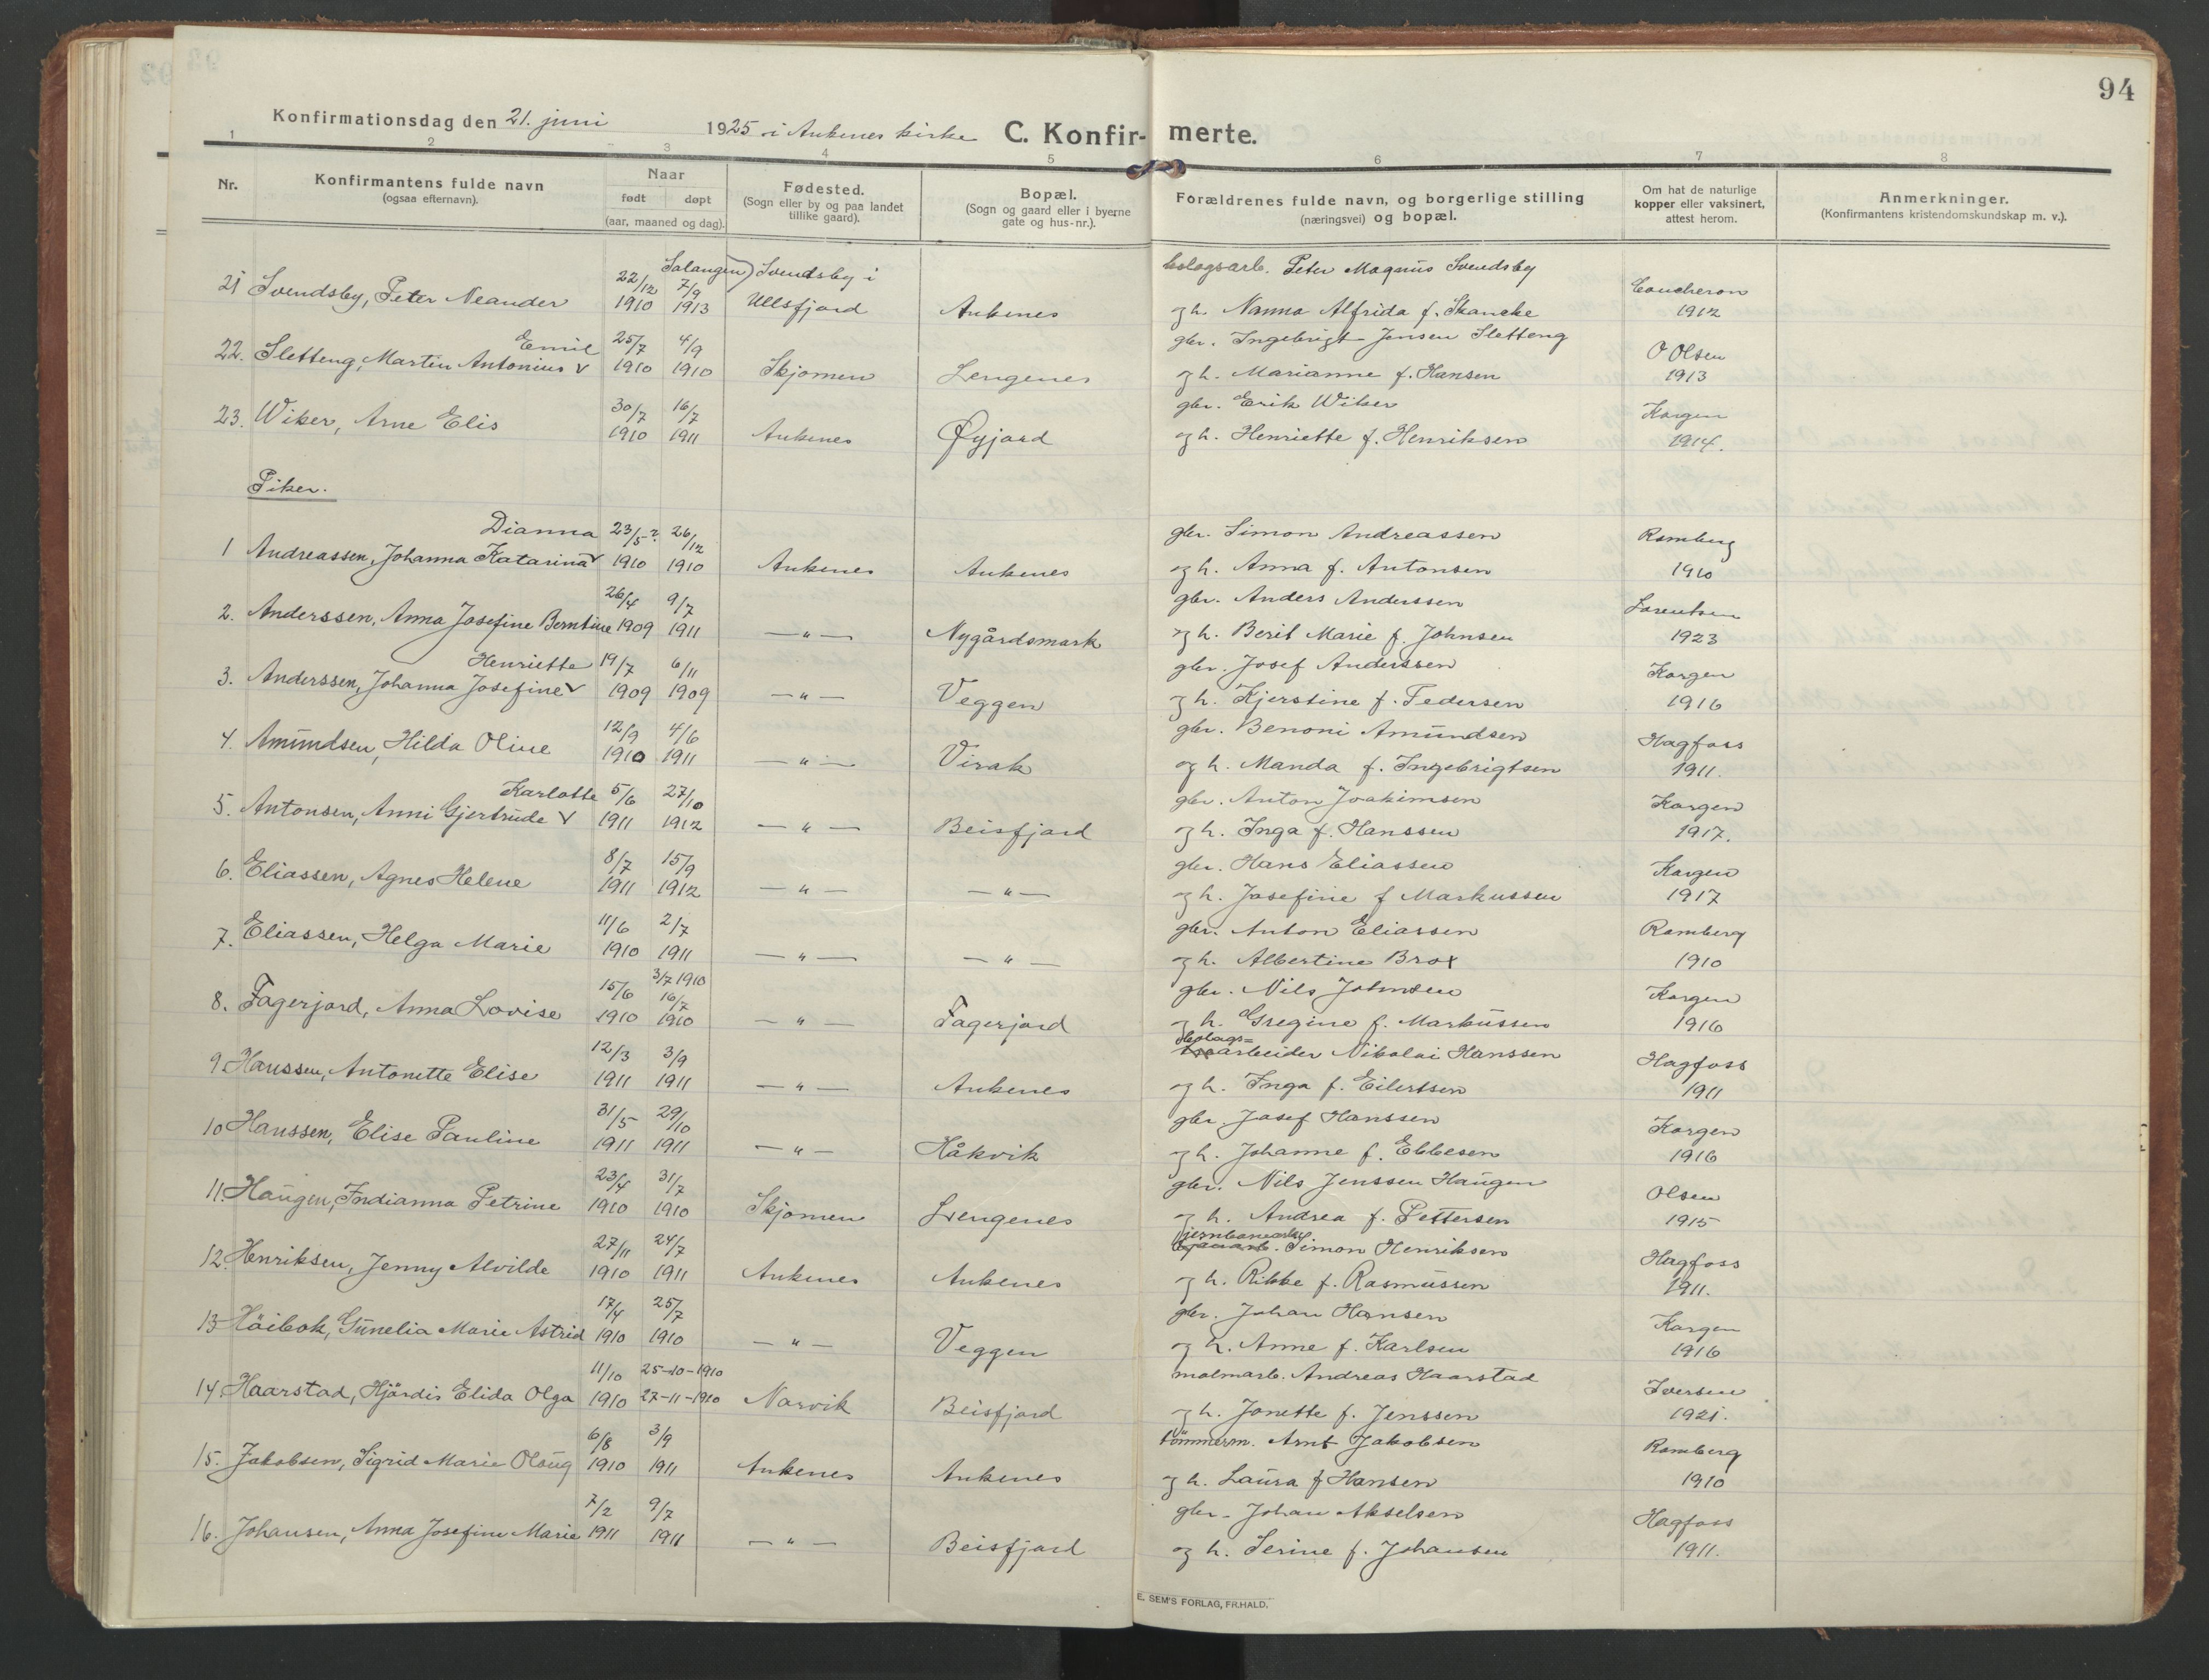 94
Konfirmationsdag den 21. juni 1925 i Ankenes kirke C. Konfir- merte.
1 2 3 4 5 6 7 8
Nr.
Konfirmantens fulde navn
(ogsaa efternavn).
Naar
født døpt
(aar, maaned og dag).
Fødested.
(Sogn eller by og paa landet
tillike gaard).
Bopæl.
(Sogn og gaard eller i byerne
gate og hus-nr.).
Forældrenes fulde navn, og borgerlige stilling
(næringsvei) og bopæl.
Om hat de naturlige
kopper eller vaksinert,
attest herom.
Anmerkninger.
(Konfirmantens kristendomskundskap m. v.).
Salangen) Svendsby i bolagsarb. Peter Magnus Svendsby
21 Svendsby, Peter Neander 22/12 1910 7/9 1913 Ullsfjord Ankenes og h. Nanna Alfrida f. Skancke Coucheron 1912
Emil 25/7 4/9 gbr. Ingebrigt Jensen Sletteng O Olsen
22. Sletteng, Martin Antonius v 1910 1910 Skjomen Lengenes og h. Marianne f. Hansen 1913
30/7 16/7 gbr. Erik Wiker Korgen
23. Wiker, Arne Elis 1910 1911 Ankenes Øyjord og h. Henriette f. Henriksen 1914.
Piker.
Dianna 23/5? 26/12 gbr. Simon Andreassen Ramberg
1 Andreassen, Johanna Katarina v 1910 1910 Ankenes Ankenes og h. Anna f. Antonsen 1910
26/4 9/7 gbr. Anders Anderssen Lorentsen
2. Anderssen, Anna Josefine Berntine 1909 1911 — " — Nygårdsmark og h. Berit Marie f. Johnsen 1923
Henriette 19/7 6/11 gbr. Josef Anderssen Korgen
3. Anderssen, Johanna Josefine v 1909 1909 — " — Veggen og h. Kjerstine f. Pedersen 1916
12/9 4/6 gbr. Benoni Amundsen Hagfoss
4. Amundsen, Hilda Oline 1910 1911 — " — Virak og h. Manda f. Ingebrigtsen 1911.
Karlotte 5/6 27/10 gbr. Anton Joakimsen Korgen
5. Antonsen, Anni Gjertrude v 1911 1912 — " — Beisfjord og h. Inga f. Hanssen 1917.
8/7 15/9 gbr. Hans Eliassen Korgen
6. Eliassen, Agnes Helene 1911 1912 — " — — " — og h. Josefine f Markussen 1917
11/6 2/7 gbr. Anton Eliassen Ramberg
7. Eliassen, Helga Marie 1910 1911 — " — — " — og h. Albertine Brox 1910
15/6 3/7 1910 16/7 gbr. Nils Johnsen Korgen
8. Fagerjord, Anna Lovise 1910 1910 — " — Fagerjord og h. Gregine f. Markussen 1916
12/3 3/9 Bolags= arbeider Nikolai Hanssen Hagfoss
9. Hanssen, Antonette Elise 1911 1911 — " — Ankenes og h. Inga f. Eilertsen 1911
31/5 29/10 gbr. Josef Hanssen Korgen
10 Hanssen, Elise Pauline 1911 1911 — " — Håkvik og h. Johanne f. Ebbesen 1916
23/4 31/7 gbr. Nils Jenssen Haugen Olsen
11. Haugen, Indianna Petrine 1910 1910 Skjomen Lengenes og h. Andrea f. Pettersen 1915
27/11 24/7 jernbanearb. Simon Henriksen Hagfoss
12. Henriksen, Jenny Alvilde 1910 1911 Ankenes Ankenes og h. Rikke f. Rasmussen 1911.
17/4 25/7 gbr. Johan Hansen Korgen
13 Høibok, Gunelia Marie Astrid 1910 1910 — " — Veggen og h. Anne f. Karlsen 1916
11/10 25-10-1910 malmarb. Andreas Haarstad Iversen
14. Haarstad, Hjördis Elida Olga 1910 27-11-1910 Narvik Beisfjord og h. Jonette f. Jenssen 1921.
6/8 3/9 tømmerm. Arnt Jakobsen Ramberg
15. Jakobsen, Sigrid Marie Olaug 1910 1911 Ankenes Ankenes og h. Laura f Hansen 1910
7/2 9/7 gbr. Johan Akselsen Hagfoss
16. Johansen, Anna Josefine Marie 1911 1911 — " — Beisfjord og h. Serine f. Johansen 1911.
E. SEM'S FORLAG, FR.HALD.